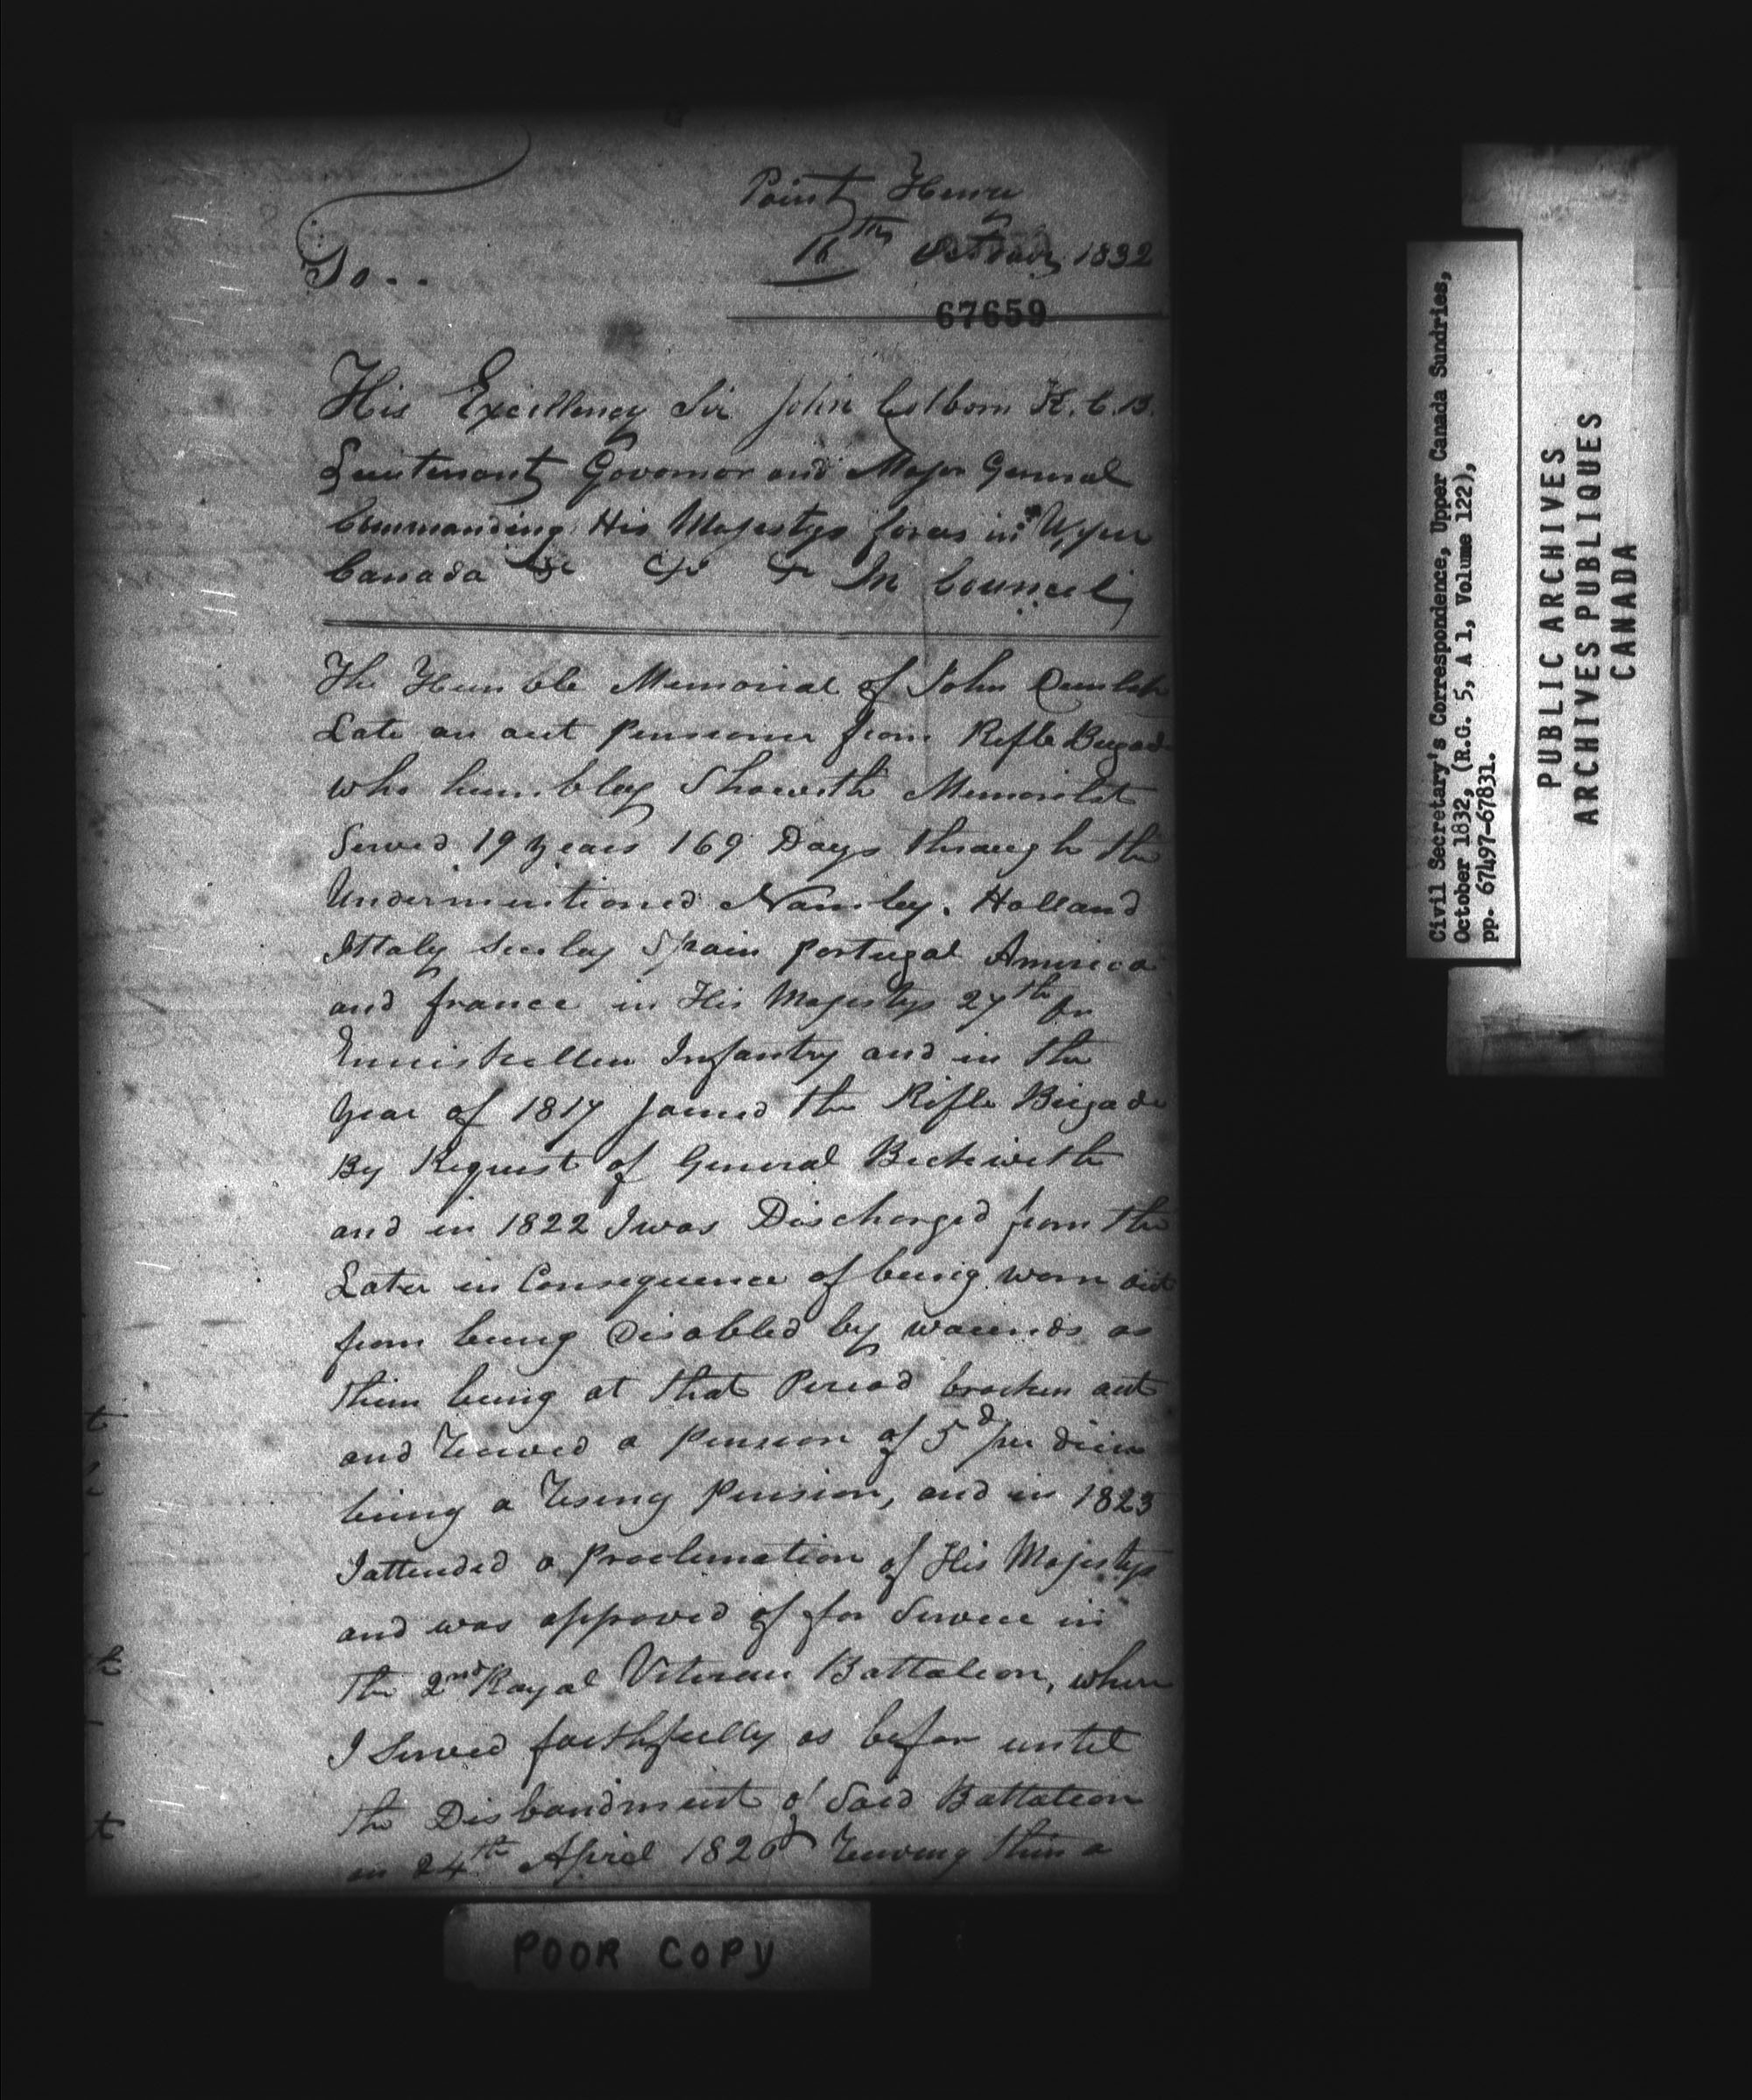 Point Henry
16th October 1832
To..
67659
His Excellency Sir John Colborn K.C.B.
Lieutenant Governor and Major General
Commanding His Majestys forces in Upper
Canada &c &c &c In Council
The Humble Memorial of John
Late an out Pensioner from Rifle Brigade
who humbley Showeth Memorilst
Served 19 years 169 Days through the
Undermentioned Namley. Holland
Ittaly Sicilay Spain Portugal America
and france in His Majestys 27th or
Enniskillen Infantry and in the
Year of 1817 Joined the Rifle Brigade
By Request of General Beckwith
and in 1822 I was Discharged from the
Later in Consequence of being worn out
from being Disabled by wounds as
them being at that Period brocken out
and a Pension of 5d per diem
being a Pension, and in 1823
I attended a Proclemation of His Majestys
and was approved of for Service in
the 2nd Royal Viteran Battalion, where
I Served faithfully as befor until
the Disbandment of Said Battalion
on 24th April 1826 then a
POOR COPY
Civil Secretary's Correspondence, Upper Canada Sundries,
October 1832, (R.G. 5, A 1, Volume 122),
pp. 67497-67831.
PUBLIC ARCHIVES
ARCHIVES PUBLIQUES
CANADA